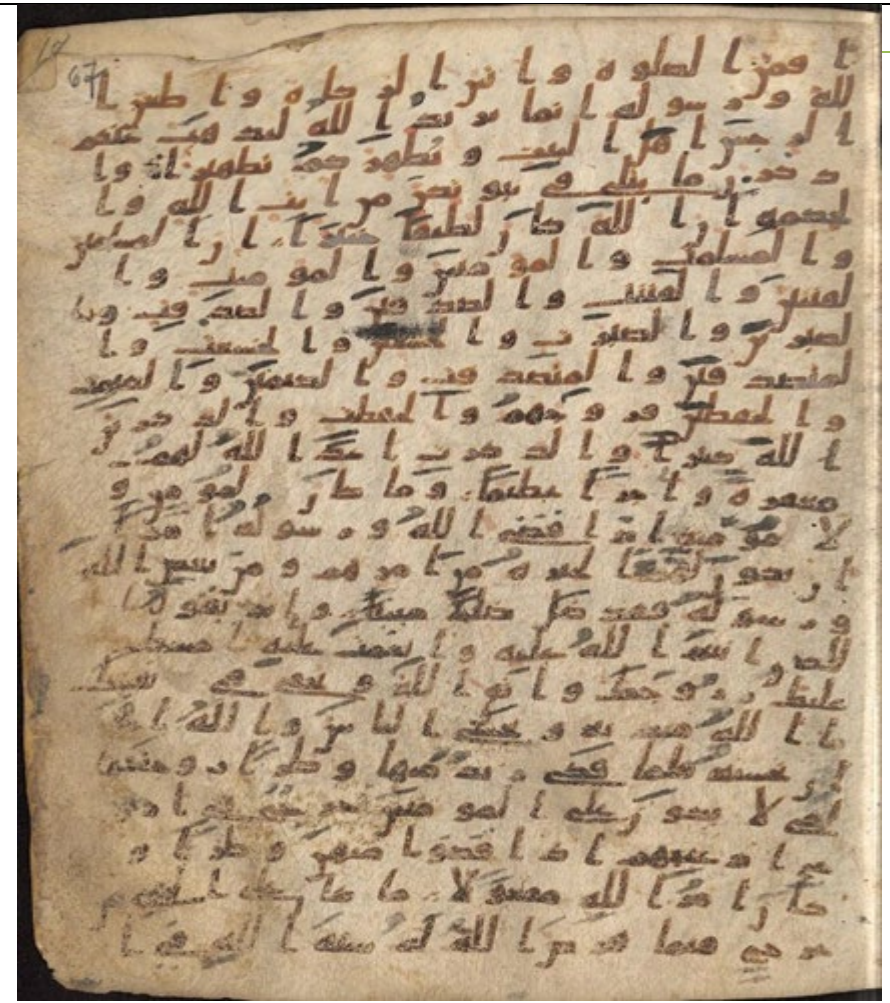 67
اقمن الصلوة واتين الزكوة واطعن ا
لله ورسوله انما يريد الله ليذهب عنكم
الرجس اهل البيت ويطهركم تطهيرا وا
ذكرن ما يتلى في بيوتكن من ايت الله وا
لحكمه ان الله كان لطيفا خبيرا ان المسلمين
والمسلمت والمومنين والمومنت وا
لقنتين والقنتت والصدقين والصدقت وا
لصبرين والصبرت والخشعين والخشعت وا
لمتصدقين والمتصدقت والصيمين والصيمت
والحفظين فروجهم والحفظت والذكرين
الله كثيرا والذكرت اعد الله لهم
مغفرة واجرا عظيما وما كان لمومن و
لا مومنة اذا قضى الله ورسوله امرا
ان يكون لهم الخيرة من امرهم ومن يعص الله
ورسوله فقد ضل ضللا مبينا واذ تقول
للذي انعم الله عليه وانعمت عليه امسك
عليك زوجك واتق الله وتخفي في نفسك
ما الله مبديه وتخشى الناس والله احق
ان تخشيه فلما قضى زيد منها وطرا زوجنكها
لكي لا يكون على المومنين حرج في ازو
ج ادعيهم اذا قضوا منهن وطرا و
كان امر الله مفعولا ما كان على النبي من
حرج فيما فرض الله له سنة الله في ا